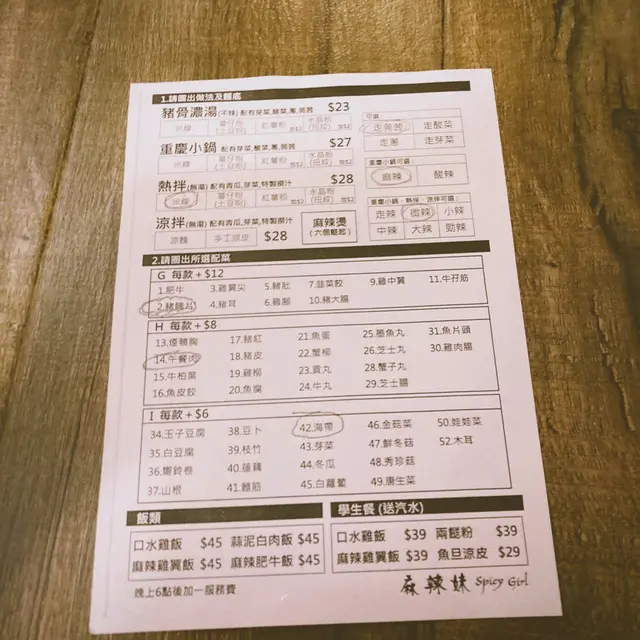 1.請圈出做法及麵底
豬骨濃湯(不辣) 配有芽菜,酸菜,蔥,莞茜 $23
米線 薯仔粉(土豆粉) 紅薯粉 加$2 水晶粉(扭紋) 加$2
重慶小鍋 配有芽菜,酸菜,蔥,莞茜 $27
米線 薯仔粉(土豆粉) 紅薯粉 加$2 水晶粉(扭紋) 加$2
熱拌(無湯) 配有青瓜,芽菜,特製撈汁 $28
米線 薯仔粉(土豆粉) 紅薯粉 加$2 水晶粉(扭紋) 加$2
涼拌(無湯) 配有青瓜,芽菜,特製撈汁
涼麵 手工涼皮 $28
麻辣燙
(六個餸起)
可選
走莞茜 走酸菜
走蔥 走芽菜
重慶小鍋可選
麻辣 酸辣
重慶小鍋、熱拌、涼拌可選:
走辣 微辣 小辣
中辣 大辣 勁辣
2.請圈出所選配菜
G 每款+$12
1.肥牛 3.雞翼尖 5.豬肚 7.韮菜餃 9.雞中翼 11.牛孖筋
2.豬腩片 4.豬耳 6.雞腳 10.豬大腸
H 每款+$8
13.煙鴨胸 17.豬紅 21.魚蛋 25.墨魚丸 31.魚片頭
14.午餐肉 18.豬皮 22.蟹柳 26.芝士丸 30.雞肉腸
15.牛柏葉 19.雞柳 23.貢丸 28.蟹子丸
16.魚皮餃 20.魚腐 24.牛丸 29.芝士腸
I 每款+$6
34.玉子豆腐 38.豆卜 42.海帶 46.金菇菜 50.娃娃菜
35.白豆腐 39.枝竹 43.芽菜 47.鮮冬菇 52.木耳
36.響鈴卷 40.蓮藕 44.冬瓜 48.秀珍菇
37.山根 41.麵筋 45.白蘿蔔 49.唐生菜
飯類
口水雞飯 $45 蒜泥白肉飯 $45
麻辣雞翼飯 $45 麻辣肥牛飯 $45
學生餐 (送汽水)
口水雞飯 $39 兩餸粉 $39
麻辣雞翼飯 $39 魚旦涼皮 $29
晚上6點後加一服務費
麻辣妹 Spicy Girl